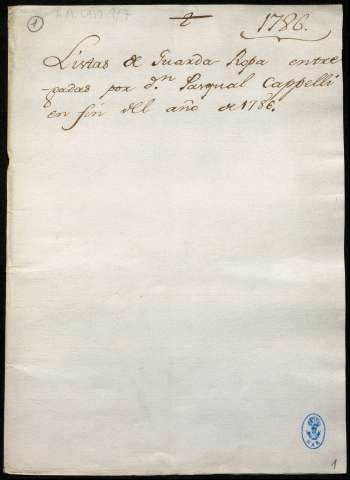 1
1786.
Listas de Guarda Ropa entre
-gadas por d.n Pasqual Cappelli
en fin del año de 1786.
1